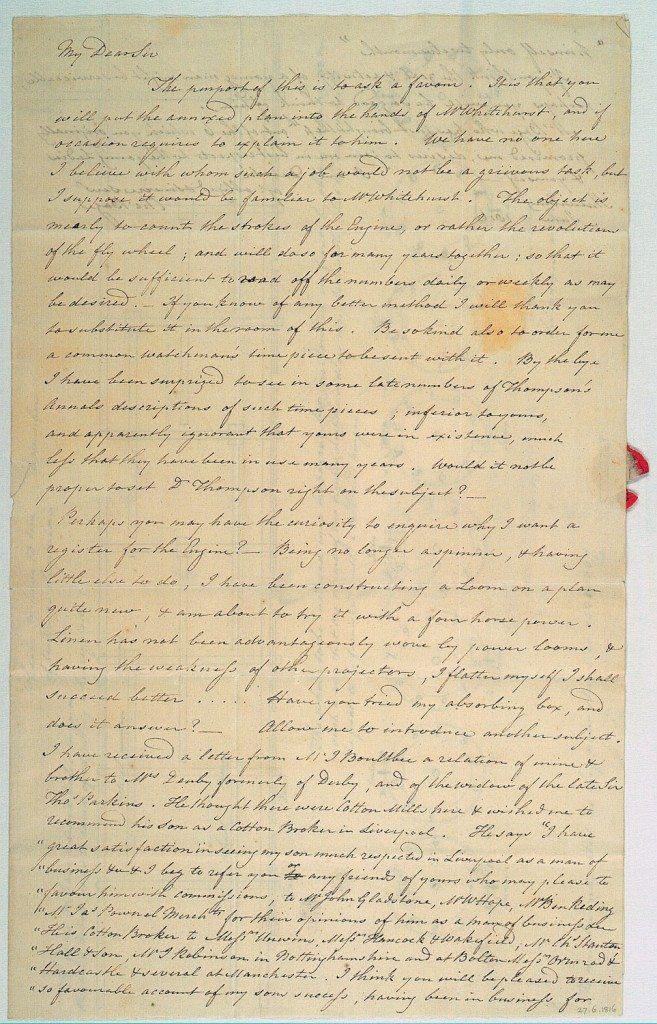 My Dear Sir
The purport of this is to ask a favour. It is that you
will put the annexed plan into the hands of Mr Whitehurst, and if
occasion requires to explain it to him. We have no one here
I believe with whom such a job would not be a grievous task, but
I suppose it would be familiar to Mr Whitehurst. The object is
mearly to count the strokes of the Engine, or rather the revolutions
of the fly wheel; and will do so for many years together; so that it
would be sufficient to read off the numbers daily or weekly as may
be desired. — If you know of any better method I will thank you
to substitute it in the room of this. Be so kind also to order for me
a common watchman's time piece to be sent with it. By the bye
I have been surprized to see in some late numbers of Thompson's
Annals descriptions of such time pieces; inferior to yours,
and apparently ignorant that yours were in existence, much
less that they have been in use many years. Would it not be
proper to set Dr Thompson right on the subject? —
Perhaps you may have the curiosity to enquire why I want a
register for the Engine? — Being no longer a spinner, & having
little else to do, I have been constructing a Loom on a plan
quite new, & am about to try it with a four horse power.
Linen has not been advantageously wove by power looms, &
having the weakness of other projectors, I flatter myself I shall
succeed better ..... Have you tried my absorbing box, and
does it answer? — Allow me to introduce another subject.
I have received a letter from Mr J Boultbee a relation of mine &
brother to Mrs Denby formerly of Derby, and of the widow of the late Sir
Thos Parkins. He thought there were Cotton Mills here & wished me to
recommend his son as a Cotton Broker in Liverpool. He says "I have
"great satisfaction in seeing my son much respected in Liverpool as a man of
"business &c & I beg to refer you or any friends of yours who may please to
"favour him with commissions, to Mr John Gladstone, Mr W Hope, Mr Ben Reding
"Mr Jas Pownel Merchts for their opinions of him as a man of business &c
"He is Cotton Broker to Messrs Unwins, Messrs Hancock & Wakefield, Mr Ch Stanton
"Hall & Son, Mr J Robinson in Nottinghamshire and at Bolton Messrs Ormrod &
"Hardcastle & several at Manchester. I think you will be pleased to receive
"so favourable account of my sons success, having been in business for
27.6.1816